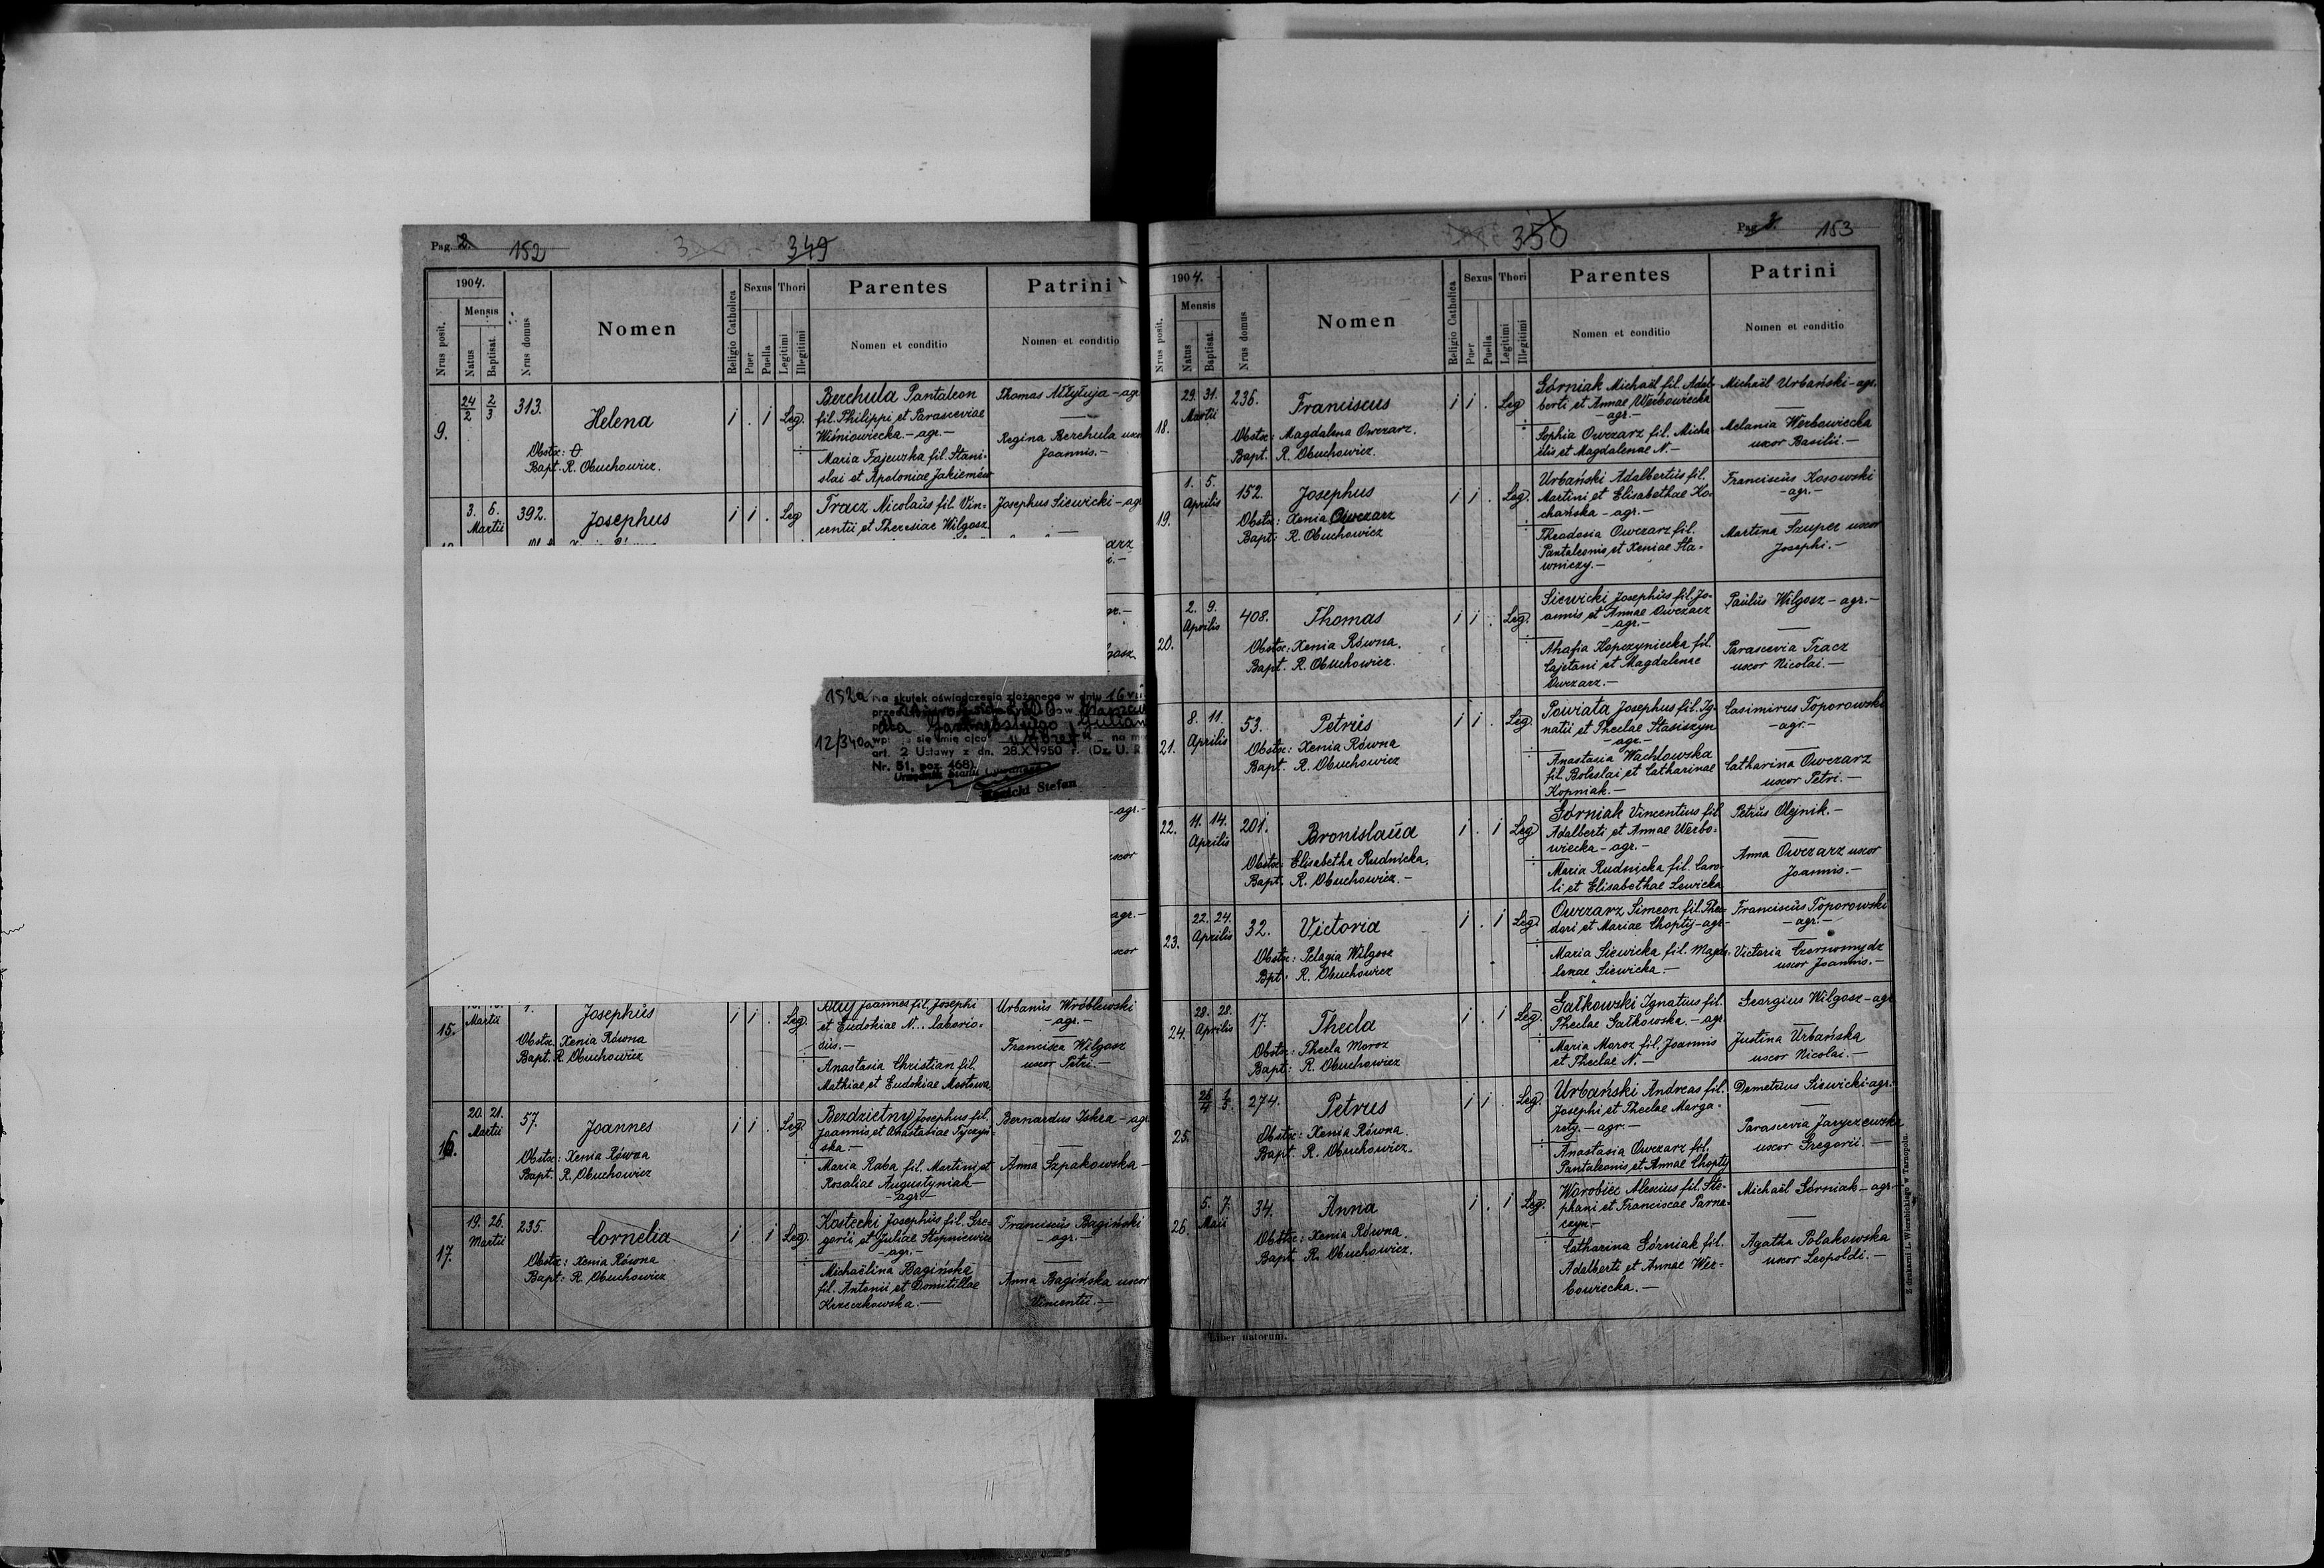 Pag. 2. 152
349
1904.
Nrus posit.
Mensis
Natus
Baptisat.
Nrus domus
Nomen
Religio Catholica
Sexus
Puer
Puella
Thori
Legitimi
Illegitimi
Parentes
Nomen et conditio
Patrini
Nomen et conditio
9.
24/2 2/3 313.
Helena
Obstx: O
Bapt. R. Obuchowicz.
i . i Leg.
Berchula Pantaleon
fil. Philippi et Parasceviae
Wiśniowiecka - agr. -
Maria Fajewska fil. Stani-
slai et Apoloniae Jakiemów
Thomas - agr
Regina Berchula uxor
Joannis. -
3. 6.
Martii
392.
Josephus
i i . Leg
Tracz Nicolaus fil. Vin-
centii et Theresiae Wilgosz
Josephus Siewicki - agr
152a Na skutek oświadczenia złożonego w dniu 16 VII
12/340a
art. 2 Ustawy z dn. 28.X 1950 r. (Dz. U. R.
Nr. 51, poz. 468).
Urzędnik Stanu Cywilnego
Stefan
15.
Martii
Josephus
Obstx. Xenia Równa
Bapt. R. Obuchowicz
i i . Leg.
Joannes fil. Josephi
et Eudokiae N.. laborio-
sus. -
Anastasia Christian fil.
Mathiae et Eudokiae Mostowa
Urbanus Wróblewski
- agr. -
Francisca Wilgosz
uxor Petri. -
16.
20. 21.
Martii
57.
Joannes
Obstx: Xenia Równa
Bapt. R. Obuchowicz
i i . Leg.
Bezdzietny Josephus fil.
Joannis et Anastasiae Tyczyń-
ska. -
Maria Raba fil. Martini et
Rosaliae Augustyniak -
- agr. -
Bernardus Iskra - agr
Anna Szpakowska -
17.
19. 26.
Martii
235.
Cornelia
Obstx: Xenia Równa
Bapt: R. Obuchowicz
i . i Leg.
Kostecki Josephus fil. Gre-
gorii et Juliae Stopniewicz
- agr. -
Michaëlina Bagińska
fil. Antonii et Domitillae
Krzeczkowska. -
Franciscus Bagiński
- agr. -
Anna Bagińska uxor
Vincentii. -
350
Pag. 3. 153
1904.
Nrus posit.
Mensis
Natus
Baptisat.
Nrus domus
Nomen
Religio Catholica
Sexus
Puer
Puella
Thori
Legitimi
Illegitimi
Parentes
Nomen et conditio
Patrini
Nomen et conditio
18.
29. 31.
Martii
236.
Franciscus
Obstx: Magdalena Owczarz.
Bapt. R. Obuchowicz.
i i . Leg
Górniak Michaël fil. Adal-
berti et Annae Werbowiecka
- agr. -
Sophia Owczarz fil. Micha-
ëlis et Magdalenae N. -
Michaël Urbański - agr.
Melania Werbowiecka
uxor Basilii. -
19.
1. 5.
Aprilis
152.
Josephus
Obstx: Xenia Owczarz
Bapt: R. Obuchowicz
i i . Leg.
Urbański Adalbertus fil.
Martini et Elisabethae Ko-
chańska - agr. -
Theodosia Owczarz fil.
Pantaleonis et Xeniae Sta-
wniczy. -
Franciscus Kosowski
- agr. -
Martina Szuper uxor
Josephi. -
20.
2. 9.
Aprilis
408.
Thomas
Obstx: Xenia Równa.
Bapt. R. Obuchowicz.
i i . Leg.
Siewicki Josephus fil. Jo-
annis et Annae Owczarz
- agr. -
Ahafia Kopczyniecka fil.
Cajetani et Magdalenae
Owczarz. -
Paulus Wilgosz - agr. -
Parascevia Tracz
uxor Nicolai. -
21.
8. 11.
Aprilis
53.
Petrus
Obstx: Xenia Równa
Bapt. R. Obuchowicz
i i . Leg
Powiata Josephus fil. Ig-
natii et Theclae Stasiszyn
- agr. -
Anastasia Wachlowska
fil. Boleslai et Catharinae
Kopniak. -
Casimirus Toporowski
- agr. -
Catharina Owczarz
uxor Petri. -
22.
11. 14.
Aprilis
201.
Bronislaua
Obstx: Elisabetha Rudnicka.
Bapt. R. Obuchowicz. -
i . i Leg
Górniak Vincentius fil
Adalberti et Annae Werbo-
wiecka - agr. -
Maria Rudnicka fil. Caro-
li et Elisabethae Lewicka
Petrus Olejnik. -
Anna Owczarz uxor
Joannis. -
23.
22. 24.
Aprilis
32.
Victoria
Obstx: Pelagia Wilgosz
Bpt: R. Obuchowicz
i . i Leg.
Owczarz Simeon fil. Theo-
dori et Mariae Chopty - agr
Maria Siewicka fil. Magda-
lenae Siewicka. -
Franciscus Toporowski
- agr. -
Victoria Czornomydz
uxor Joannis. -
24.
28. 28.
Aprilis
17.
Thecla
Obstx: Thecla Moroz
Bapt: R. Obuchowicz
i . i Leg.
Gałkowski Ignatius fil.
Theclae Gałkowska. - agr.
Maria Moroz fil. Joannis
et Theclae N. -
Georgius Wilgosz - agr
Justina Urbańska
uxor Nicolai. -
25.
274.
Petrus
Obstx: Xenia Równa.
Bapt. R. Obuchowicz.
i i . Leg.
Urbański Andreas fil.
Josephi et Theclae Marga-
rety. - agr. -
Anastasia Owczarz fil.
Pantaleonis et Annae Chopty
Demetrius Siewicki - agr.
Parascevia Jaryczewska
uxor Gregorii. -
26.
5. 7.
Maii
34.
Anna
Obstx: Xenia Równa.
Bapt. R. Obuchowicz.
i . i Leg.
Worobiec Alexius fil. Ste-
phani et Franciscae Parna-
czyn. -
Catharina Górniak fil.
Adalberti et Annae Wer-
bowiecka. -
Michaël Górniak - agr.
Agatha Polakowska
uxor Leopoldi. -
Liber natorum.
Z drukarni L. Wierzbickiego w Tarnopolu.